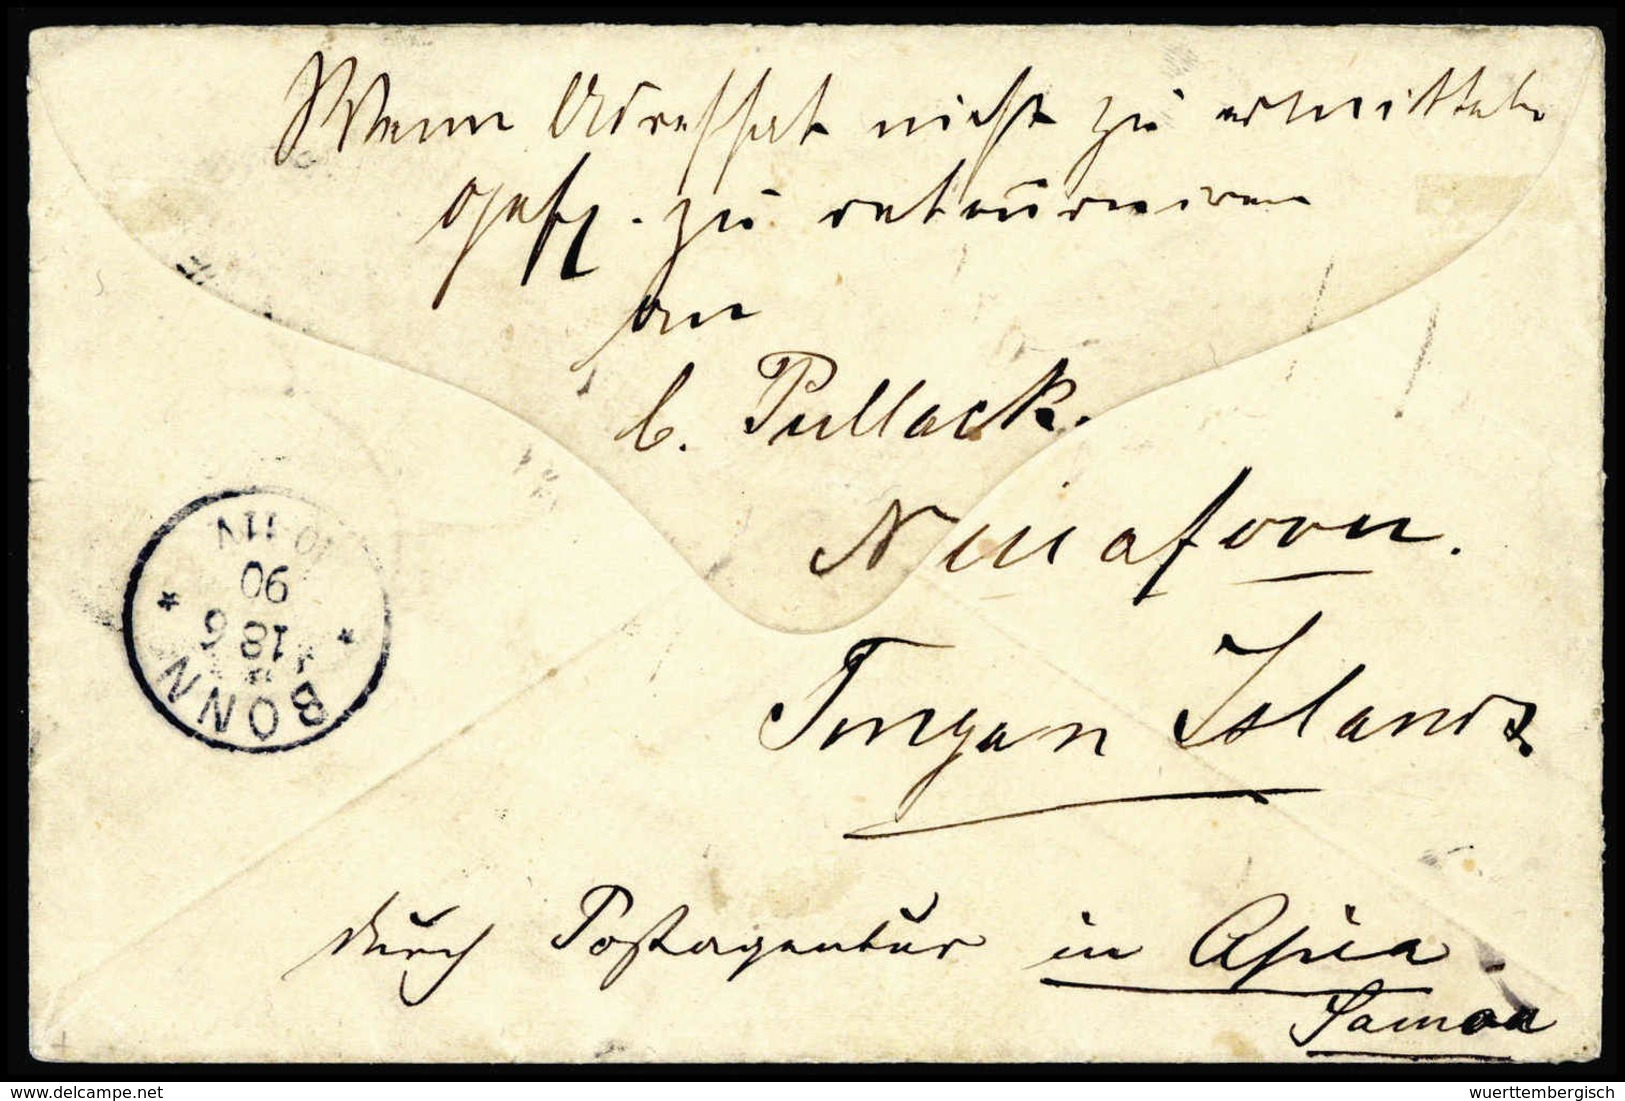 Wenn Adressat nicht zu ermitteln
gefl. zu retourniren
an
C. Pullack.
Niuafoou.
Tongan Islands
durch Postagentur in Apia
Samoa
BONN
18 6
90
10-11V
wuerttembergisch